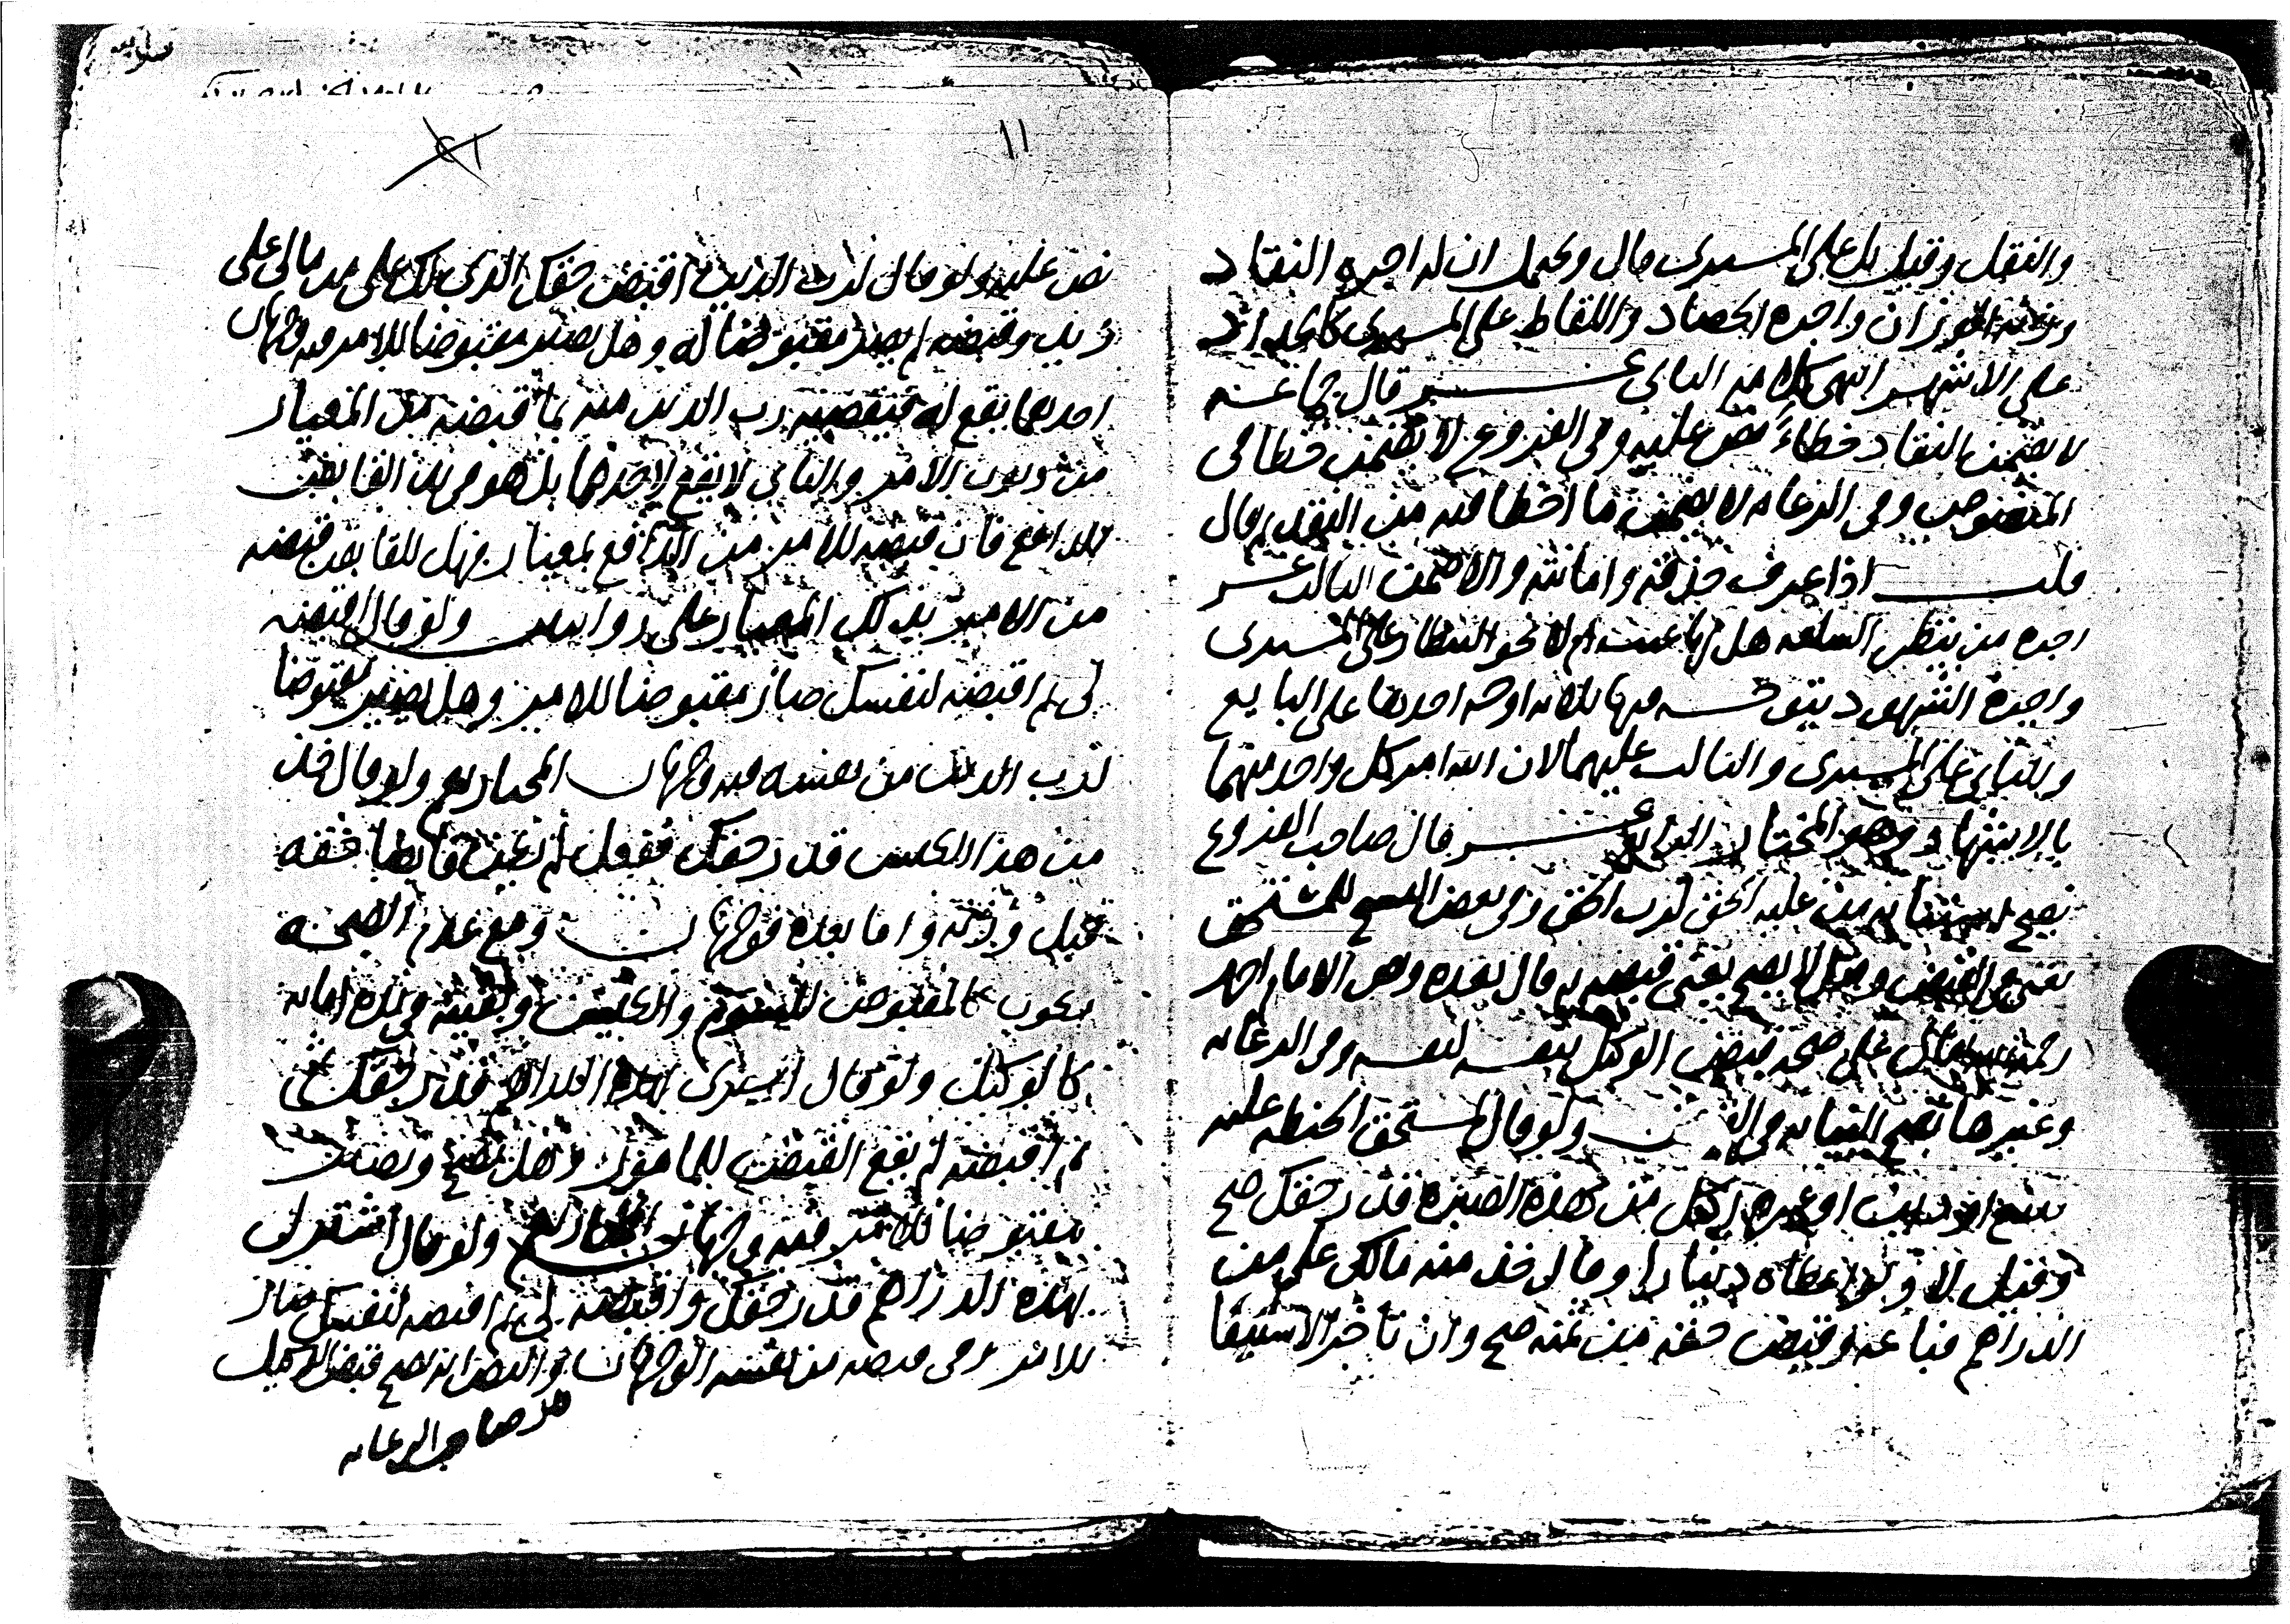 والنقل وقيل بل على المشترى قال ويحتمل ان له اجره النقاد
وزنه الوزان واجره الحصاد واللقاط على المشترى كالجداد
على الاشهر انتهى كلامه الثانى عشر قال جماعة
لا يضمن النقاد خطاءً نص عليه وفى الفروع لا يضمن خطا فى
المنصوص وفى الرعايه لا يضمن ما اخطا فيه من النقد قال
قلت اذا عرف حذقه وامانته والا ضمن الثالث عشر
اجره من ينظر السلعه هل بها عيب ام لا نحو البيطار على المشترى
واجرة الشهود يتوجه فيها ثلاثه اوجه احدها على البايع
والثانى على المشترى والثالث عليهما لان الله امر كل واحد منهما
بالاشهاد وهو المختار الرابع عشر قال صاحب الفروع
يصح استنابه من عليه الحق لرب الحق وفى بعض النسخ للمستحق
يعنى فى القبض وقيل لا يصح يعنى قبضه قال بعده ونص الامام احمد
رحمه على صحه قبض الوكيل من نفسه لنفسه وفى الرعايه
وغيرها تصح النيابه فى ولو قال لمستحق الحنطه عليه
بسلم او دين او غيره اكتل من هذه الصبره قدر حقك صح
وقيل لا ولو اعطاه دينارا وقال خذ منه مالك على من
الدراهم فباعه وقبض حقه من ثمنه صح وان تاخر الاستيفا
١١
نص عليه ولو قال لرب الدين اقبض حقك الذى لك على من مالى على
زيد وقبضه لم يصر مقبوضا له وهل يصير مقبوضا للامر فيه وجهان
احدهما يقع له فيقبضه رب الدين منه بما قبضه من المعيار
من ديون الامر والثانى لا يقع لاحدهما بل هو فى يد القابض
للدافع فان قبضه للامر من الدافع بمعيار فهل للقابض قبضه
من الامر بذلك المعيار على روايتين ولو قال اقبضه
لى ثم اقبضه لنفسك صار مقبوضا للامر وهل يصير مقبوضا
لرب الدين من نفسه فيه وجهان ولو قال خذ
من هذا الكيس قدر حقك ففعل لم يكن قابضا حقه
قبل وزنه واما بعده فوجهان ومع عدم الصحه
يكون كالمقبوض للسوم والكيس وبقيته فى يده امانه
كالوكيل ولو قال اشترى بهذه الدراهم قدر حقك
ثم اقبضه لم يقع القبض للمامور وهل يصح ويصير
مقبوضا للامر فيه وجهان ولو قال اشتر لى
بهذه الدراهم قدر حقك واقبضه لى ثم اقبضه لنفسك صار
للامر وفى قبضه من نفسه الوجهان والنص انه يصح قبض الوكيل
صاحب الرعايه